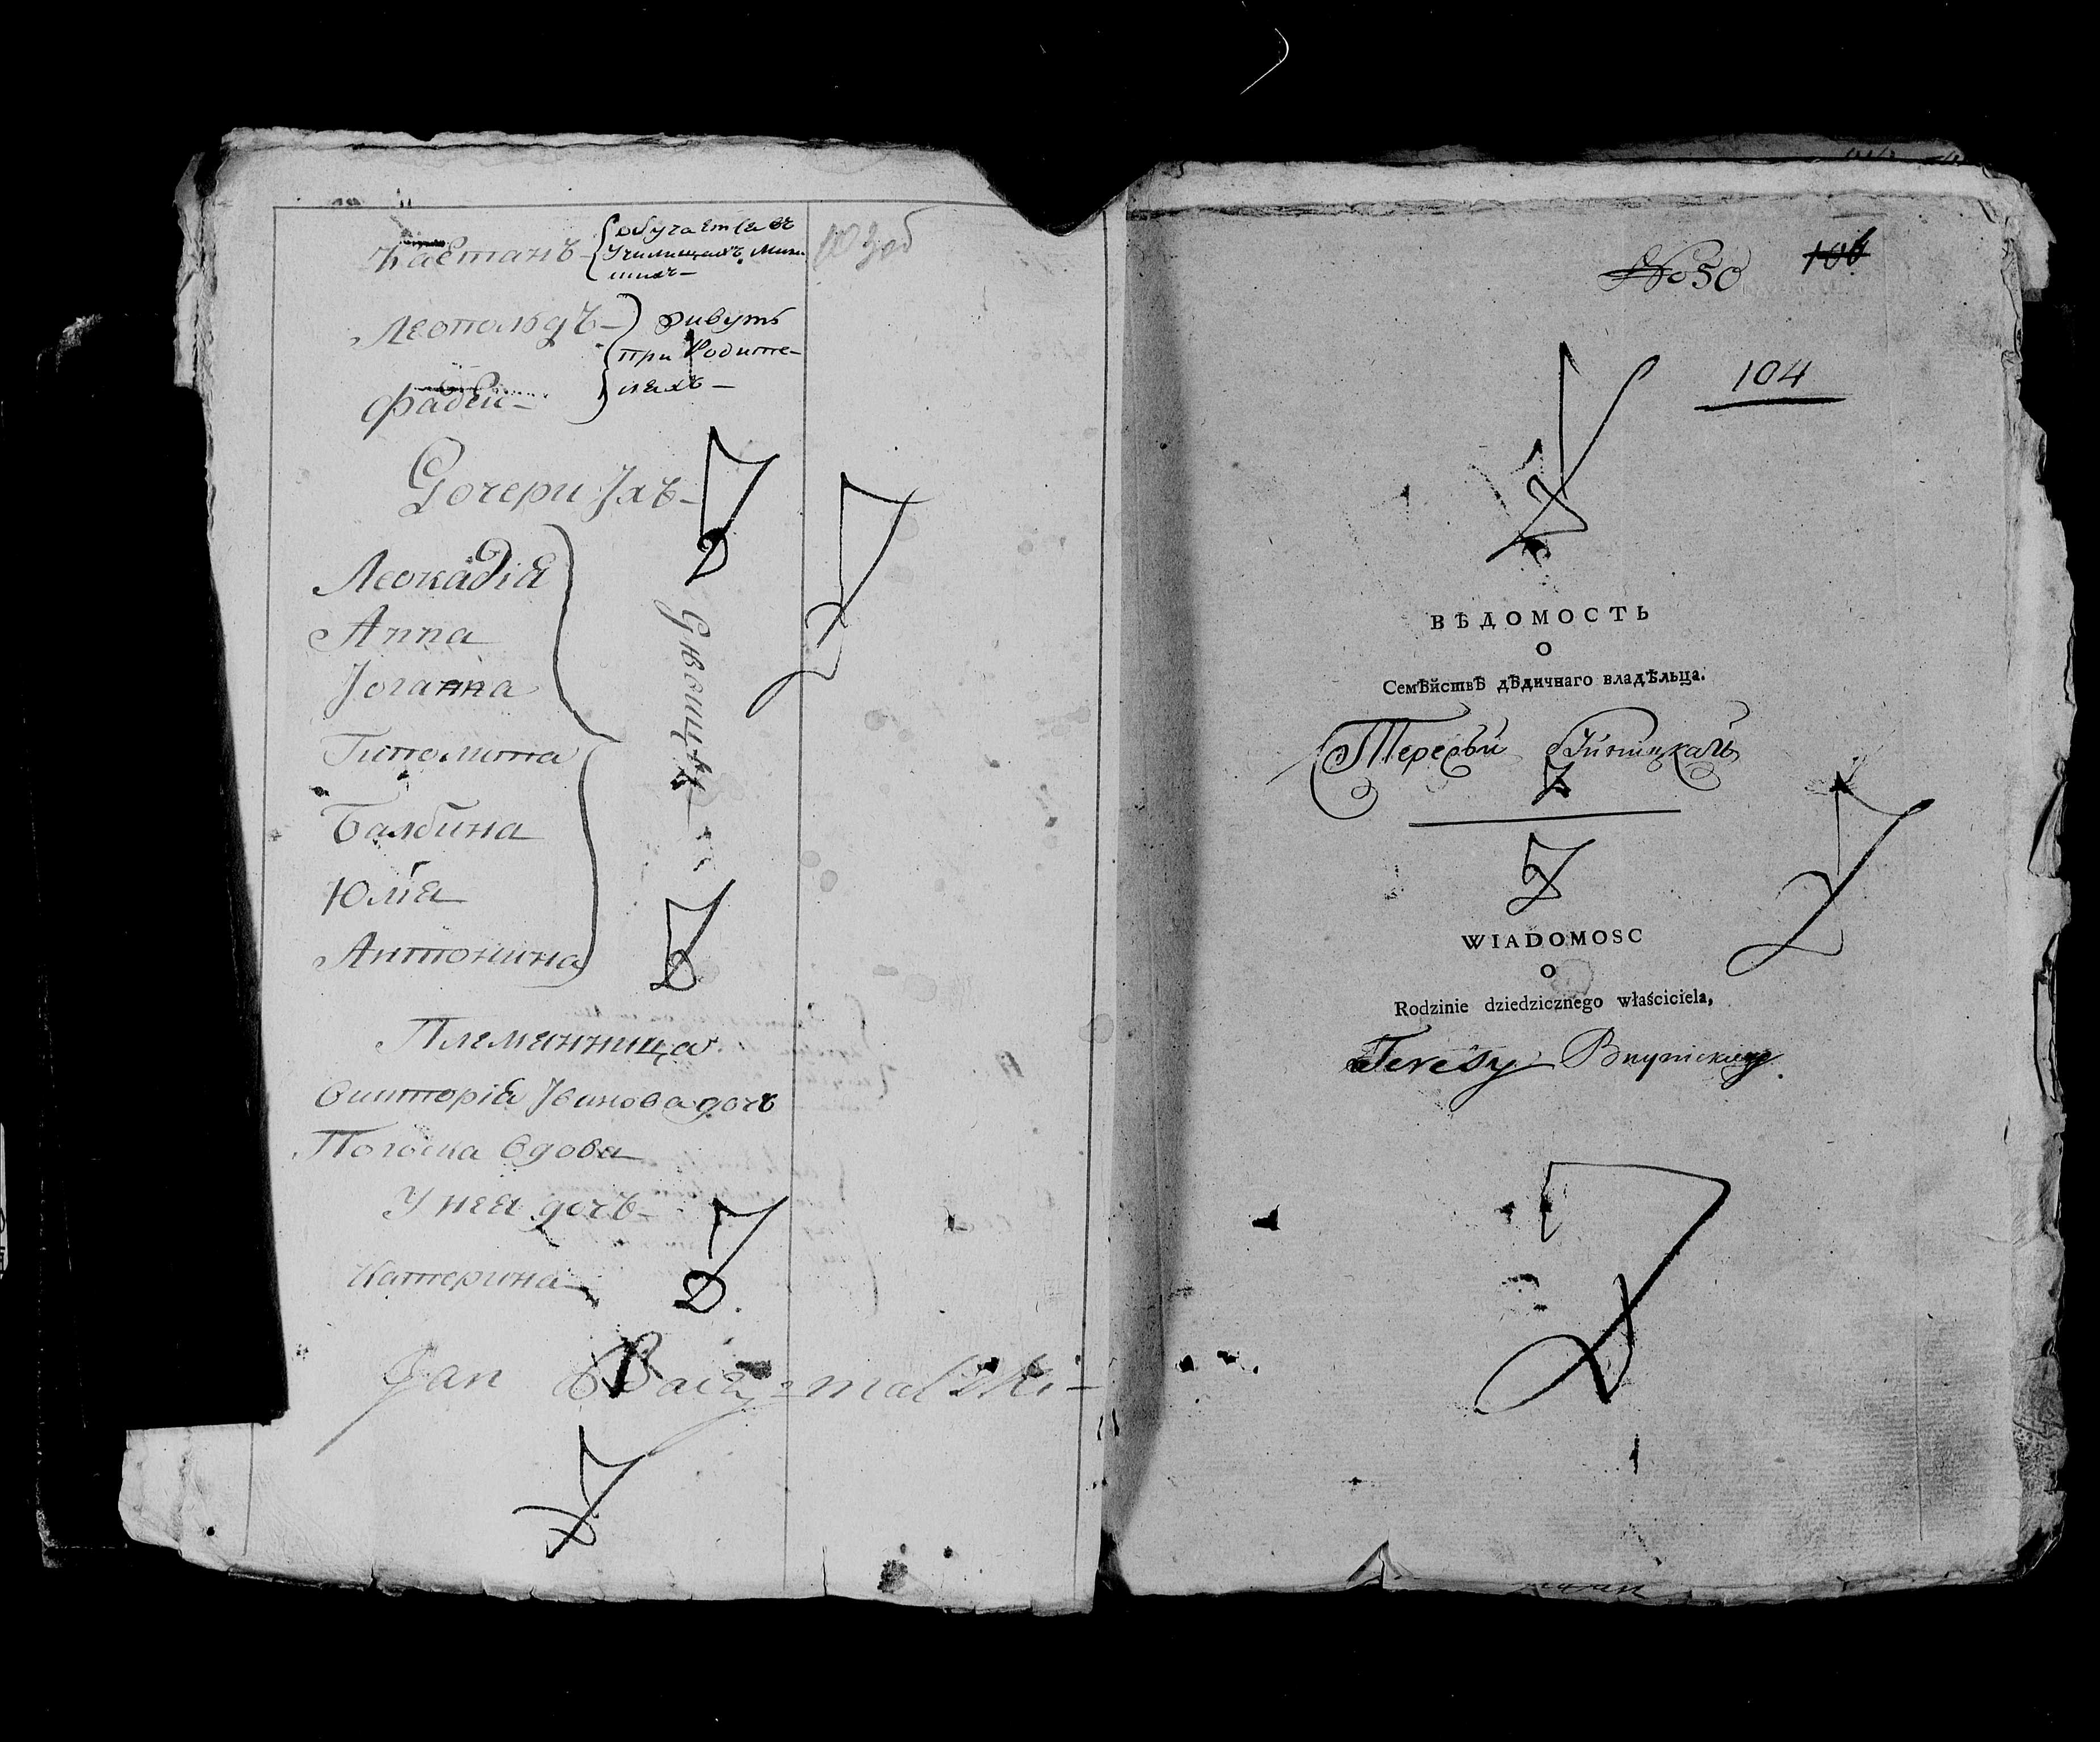 Каетанъ – обучается въ
Училищахъ Мин-
скихъ –
Леопольдъ – живутъ
при Родите-
ляхъ –
Фадей –
Дочери Ихъ –
Леокадія
Анна
Іоганна
Гиполита
Балбина
Юлія
Антонина
Девицы
Племянница
Викторія Иванова дочь
вдова
У нея дочь –
Катерина
Jan
No 50
106
104
ВѢДОМОСТЬ
О
Семѣйствѣ дѣдичнаго владѣльца.
Тересы
WIADOMOSC
O
Rodzinie dziedzicznego właściciela,
Teresy